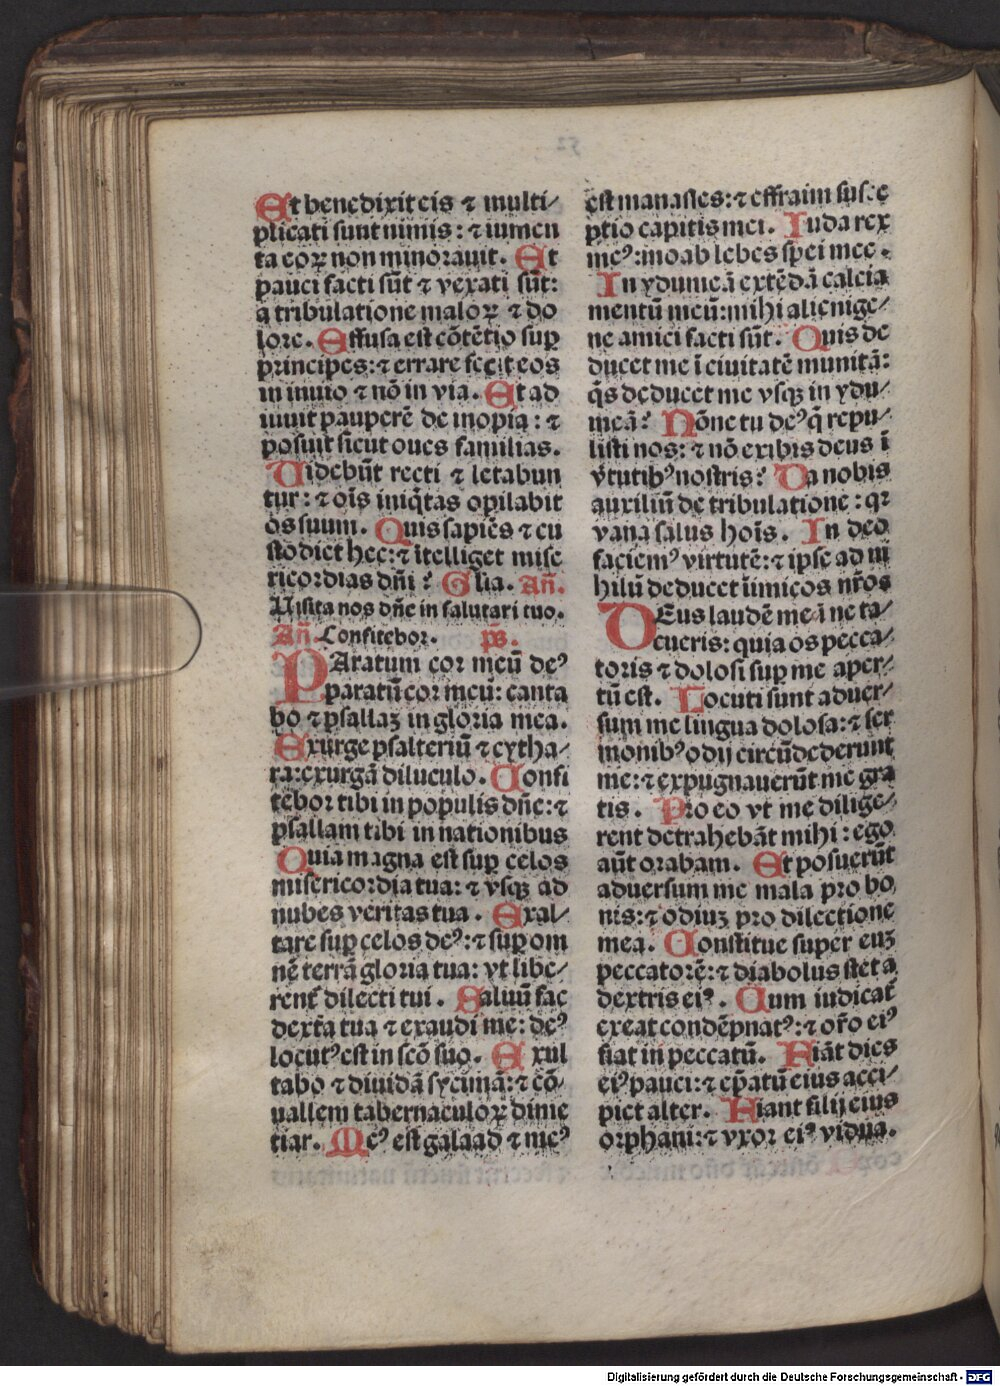 Et benedixit eis ⁊ multi⸗
plicati sunt nimis: ⁊ iumen
ta eoꝝ non minorauit. Et
pauci facti sūt ⁊ vexati sūt:
a tribulatione maloꝝ ⁊ do
lore. Effusa est cōtētio suꝑ
principes: ⁊ errare fecit eos
in inuio ⁊ nō in via. Et ad
iuuit pauperē de inopia: ⁊
posuit sicut oues familias.
Uidebūt recti ⁊ letabun
tur: ⁊ oīs iniq̄tas opilabit
os suum. Quis sapiēs ⁊ cu
stodiet hec: ⁊ ītelliget mise
ricordias dn̄i? Gl̄ia. Añ.
Uisita nos dn̄e in salutari tuo.
Añ. Confitebor. ps̄.
PAratum cor meū deꝰ
paratū cor meū: canta
bo ⁊ psallaꝫ in gloria mea.
Exurge psalteriū ⁊ cytha⸗
ra: exurgā diluculo. Confi
tebor tibi in populis dn̄e: ⁊
psallam tibi in nationibus
Quia magna est suꝑ celos
misericordia tua: ⁊ vsqꝫ ad
nubes veritas tua. Exal⸗
tare suꝑ celos deꝰ: ⁊ suꝑ om
nē terrā gloria tua: vt libe⸗
rent̄ dilecti tui. Saluū fac
dext̄a tua ⁊ exaudi me: deꝰ
locutꝰ est in scō suo. Exul
tabo ⁊ diuidā sycimā: ⁊ cō⸗
uallem tabernaculoꝝ dime
tiar. Meꝰ est galaad ⁊ meꝰ
est manasses: ⁊ effraim susce
ptio capitis mei. Iuda rex
meꝰ: moab lebes spei mee.
In ydumeā extēdā calcia
mentū meū: mihi alienige⸗
ne amici facti sūt. Quis de
ducet me ī ciuitatē munitā:
q̄s deducet me vsqꝫ in ydu⸗
meā? Nōne tu deꝰ q̄ repu⸗
listi nos: ⁊ nō exibis deus ī
v̄tutibꝰ nostris? Da nobis
auxiliū de tribulatione: qꝛ
vana salus hoīs. In deo
faciemꝰ virtutē: ⁊ ipse ad ni
hilū deducet īimicos nr̄os
DEus laudē meā ne ta⸗
cueris: quia os pecca⸗
toris ⁊ dolosi suꝑ me aper⸗
tū est. Locuti sunt aduer⸗
sum me lingua dolosa: ⁊ ser
monibꝰ odij circūdederunt
me: ⁊ expugnauerūt me gra
tis. Pro eo vt me dilige⸗
rent detrahebāt mihi: ego
aūt orabam. Et posuerūt
aduersum me mala pro bo
nis: ⁊ odiuꝫ pro dilectione
mea. Constitue super euꝫ
peccatorē: ⁊ diabolus stet a
dextris eiꝰ. Cum iudicat̄
exeat condēpnatꝰ: ⁊ or̄o eiꝰ
fiat in peccatū. Fiāt dies
eiꝰ pauci: ⁊ ep̄atū eius acci⸗
piet alter. Fiant filij eius
orphani: ⁊ vxor eiꝰ vidua.
Digitalisierung gefördert durch die Deutsche Forschungsgemeinschaft - DFG